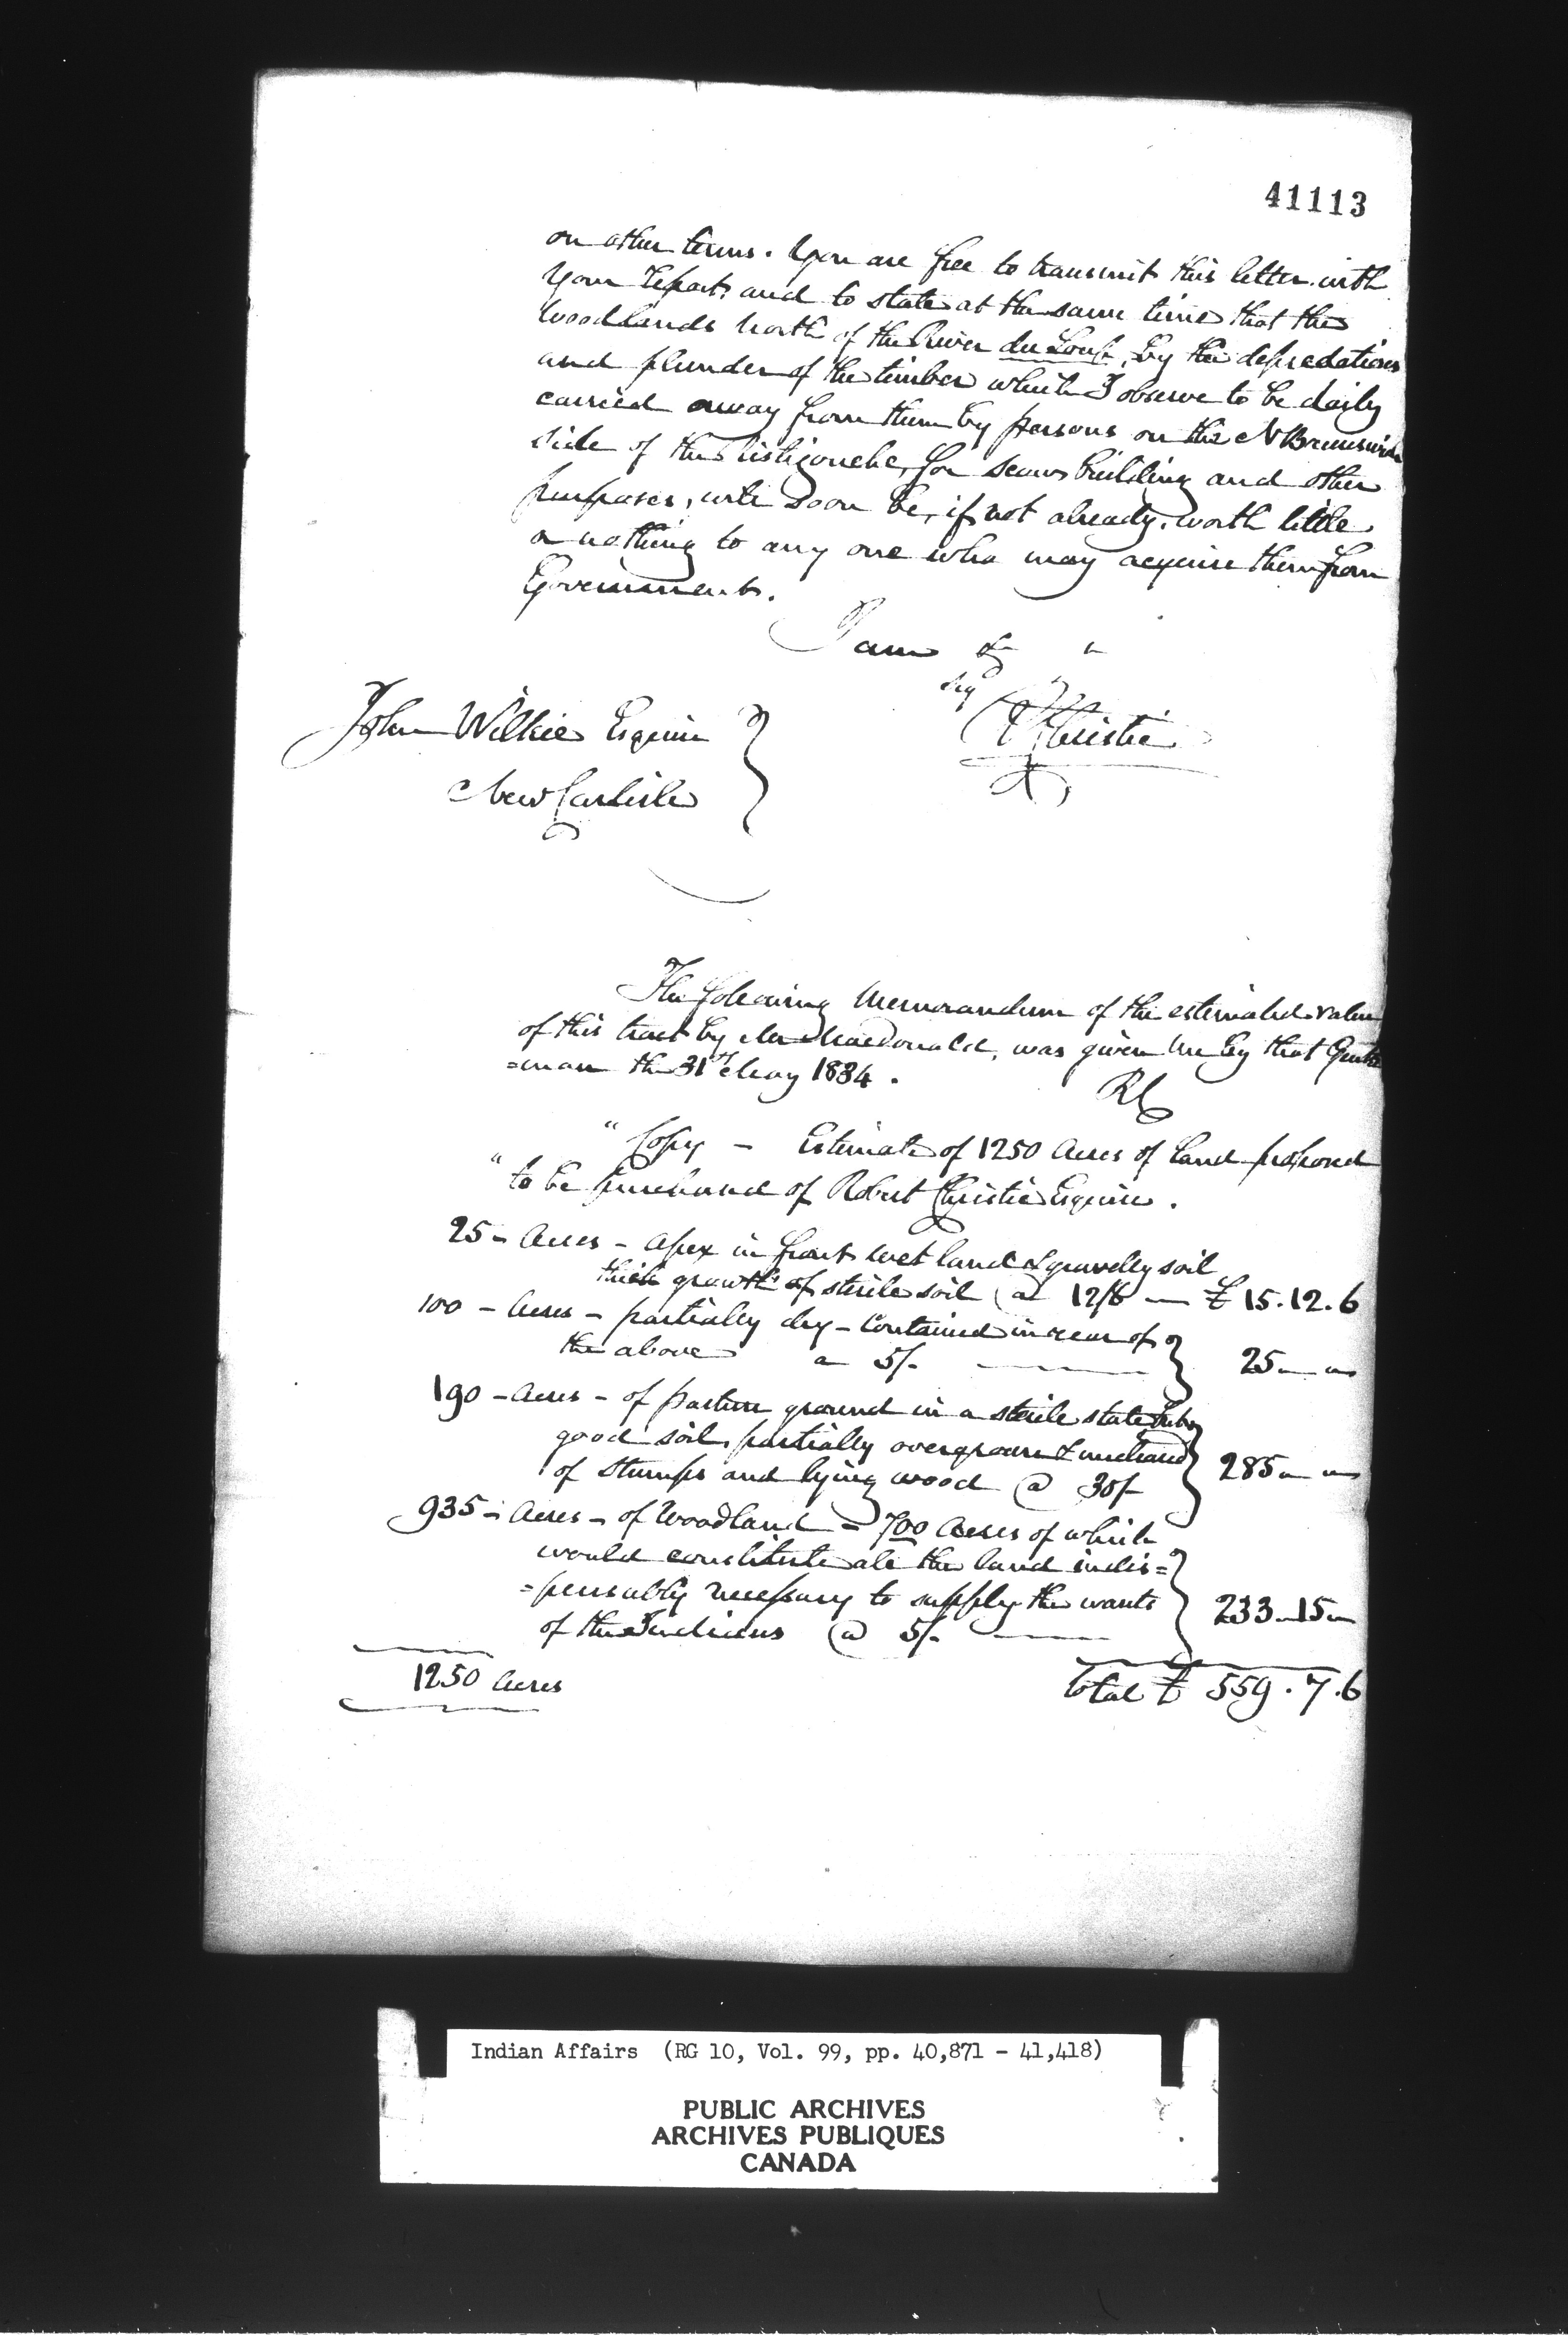 41113
on other terms. You are free to transmit this letter with
your report, and to state at the same time that the
woodlands north of the River du Loup, by the depredations
and plunder of the timber which I observe to be daily
carried away from them by persons on the N Brunswick
side of the Ristigouche, for scows building and other
purposes, will soon be, if not already, worth little
or nothing to any one who may acquire them from
Government.
I am &c
sigd
R Christie
John Wilkie Esquire
New Carlisle
The following Memorandum of the estimated value
of this tract by Mr MacDonald, was given me by that Gentle
=man the 31st May 1834.
RC
"Copy - Estimate of 1250 Acres of Land proposed
"to be purchased of Robert Christie Esquire.
25 - Acres - Apex in front wet land & gravelly soil
thick growth of sterile soil @ 12/6 — £ 15.12.6
100 - Acres - partially dry - contained in rear of
the above a 5/- 25 — "
190 - Acres - of pasture ground in a sterile state but
good soil, partially overgrown &
of stumps and lying wood @ 30/- 285 " "
935 - Acres - of Woodland - 700 Acres of which
would constitute all the land indis=
=pensably necessary to supply the wants
of the Indians @ 5/- 233 - 15 -
1250 Acres
Total £ 559.7.6
Indian Affairs (RG 10, Vol. 99, pp. 40,871 - 41,418)
PUBLIC ARCHIVES
ARCHIVES PUBLIQUES
CANADA